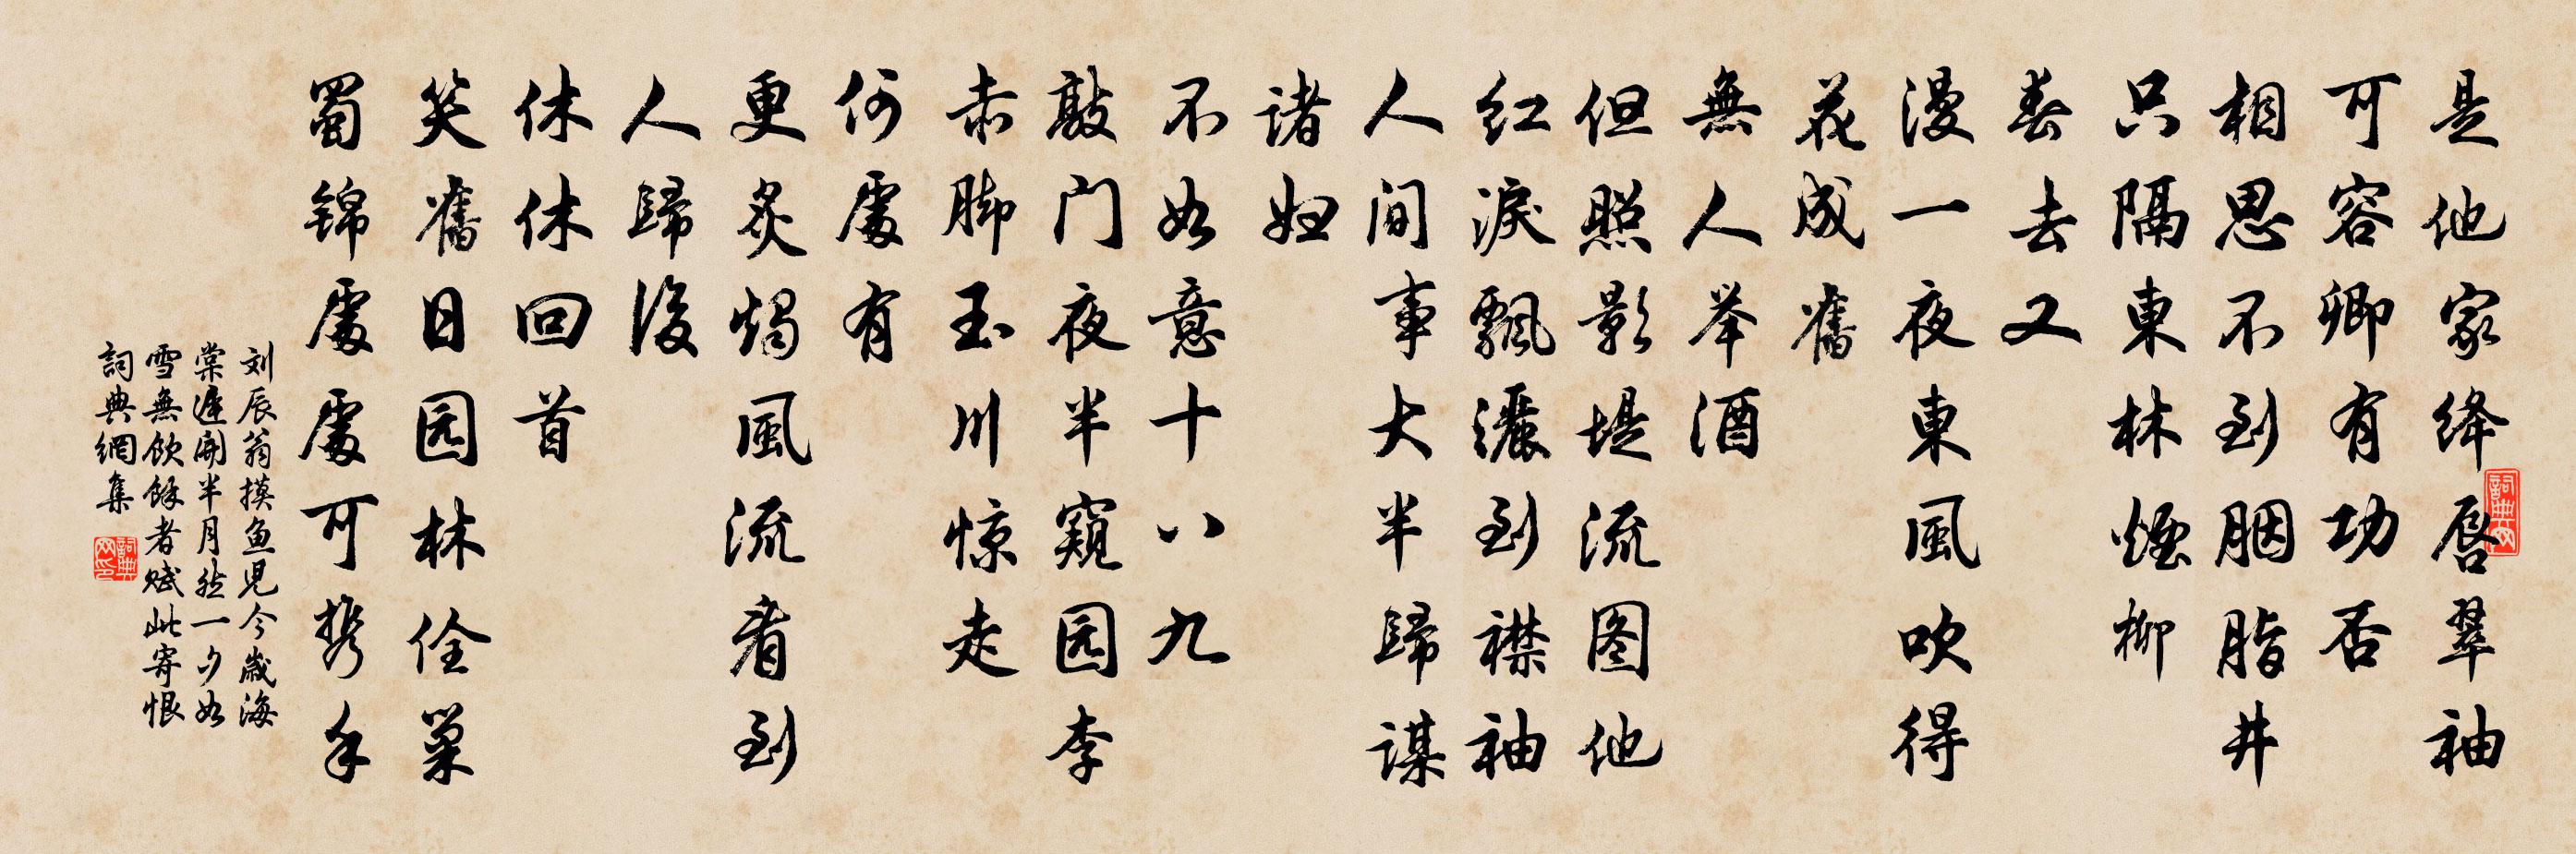 是他家绛唇翠袖
可容卿有功否
相思不到胭脂井
只隔東林煙柳
春去又
漫一夜東風吹得
花成舊
無人举酒
但照影堤流图他
红淚飄灑到襟袖
人间事大半歸谋
诸妇
不如意十八九
敲门夜半窥园李
赤脚玉川惊走
何處有
更炙燭風流看到
人歸後
休休回首
笑舊日园林佺巢
蜀锦處處可携手
刘辰翁摸鱼児今歲海
棠遲開半月然一夕如
雪無飲餘者赋此寄恨
詞典網集
詞典网
詞典网印